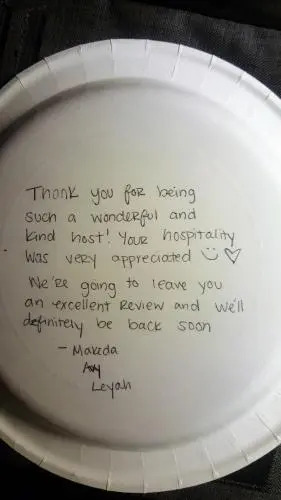 Thank you for being
such a wonderful and
kind host! Your hospitality
was very appreciated ☺ ♡
We're going to leave you
an excellent Review and we'll
definitely be back soon
- Makeda
Avy
Leyah